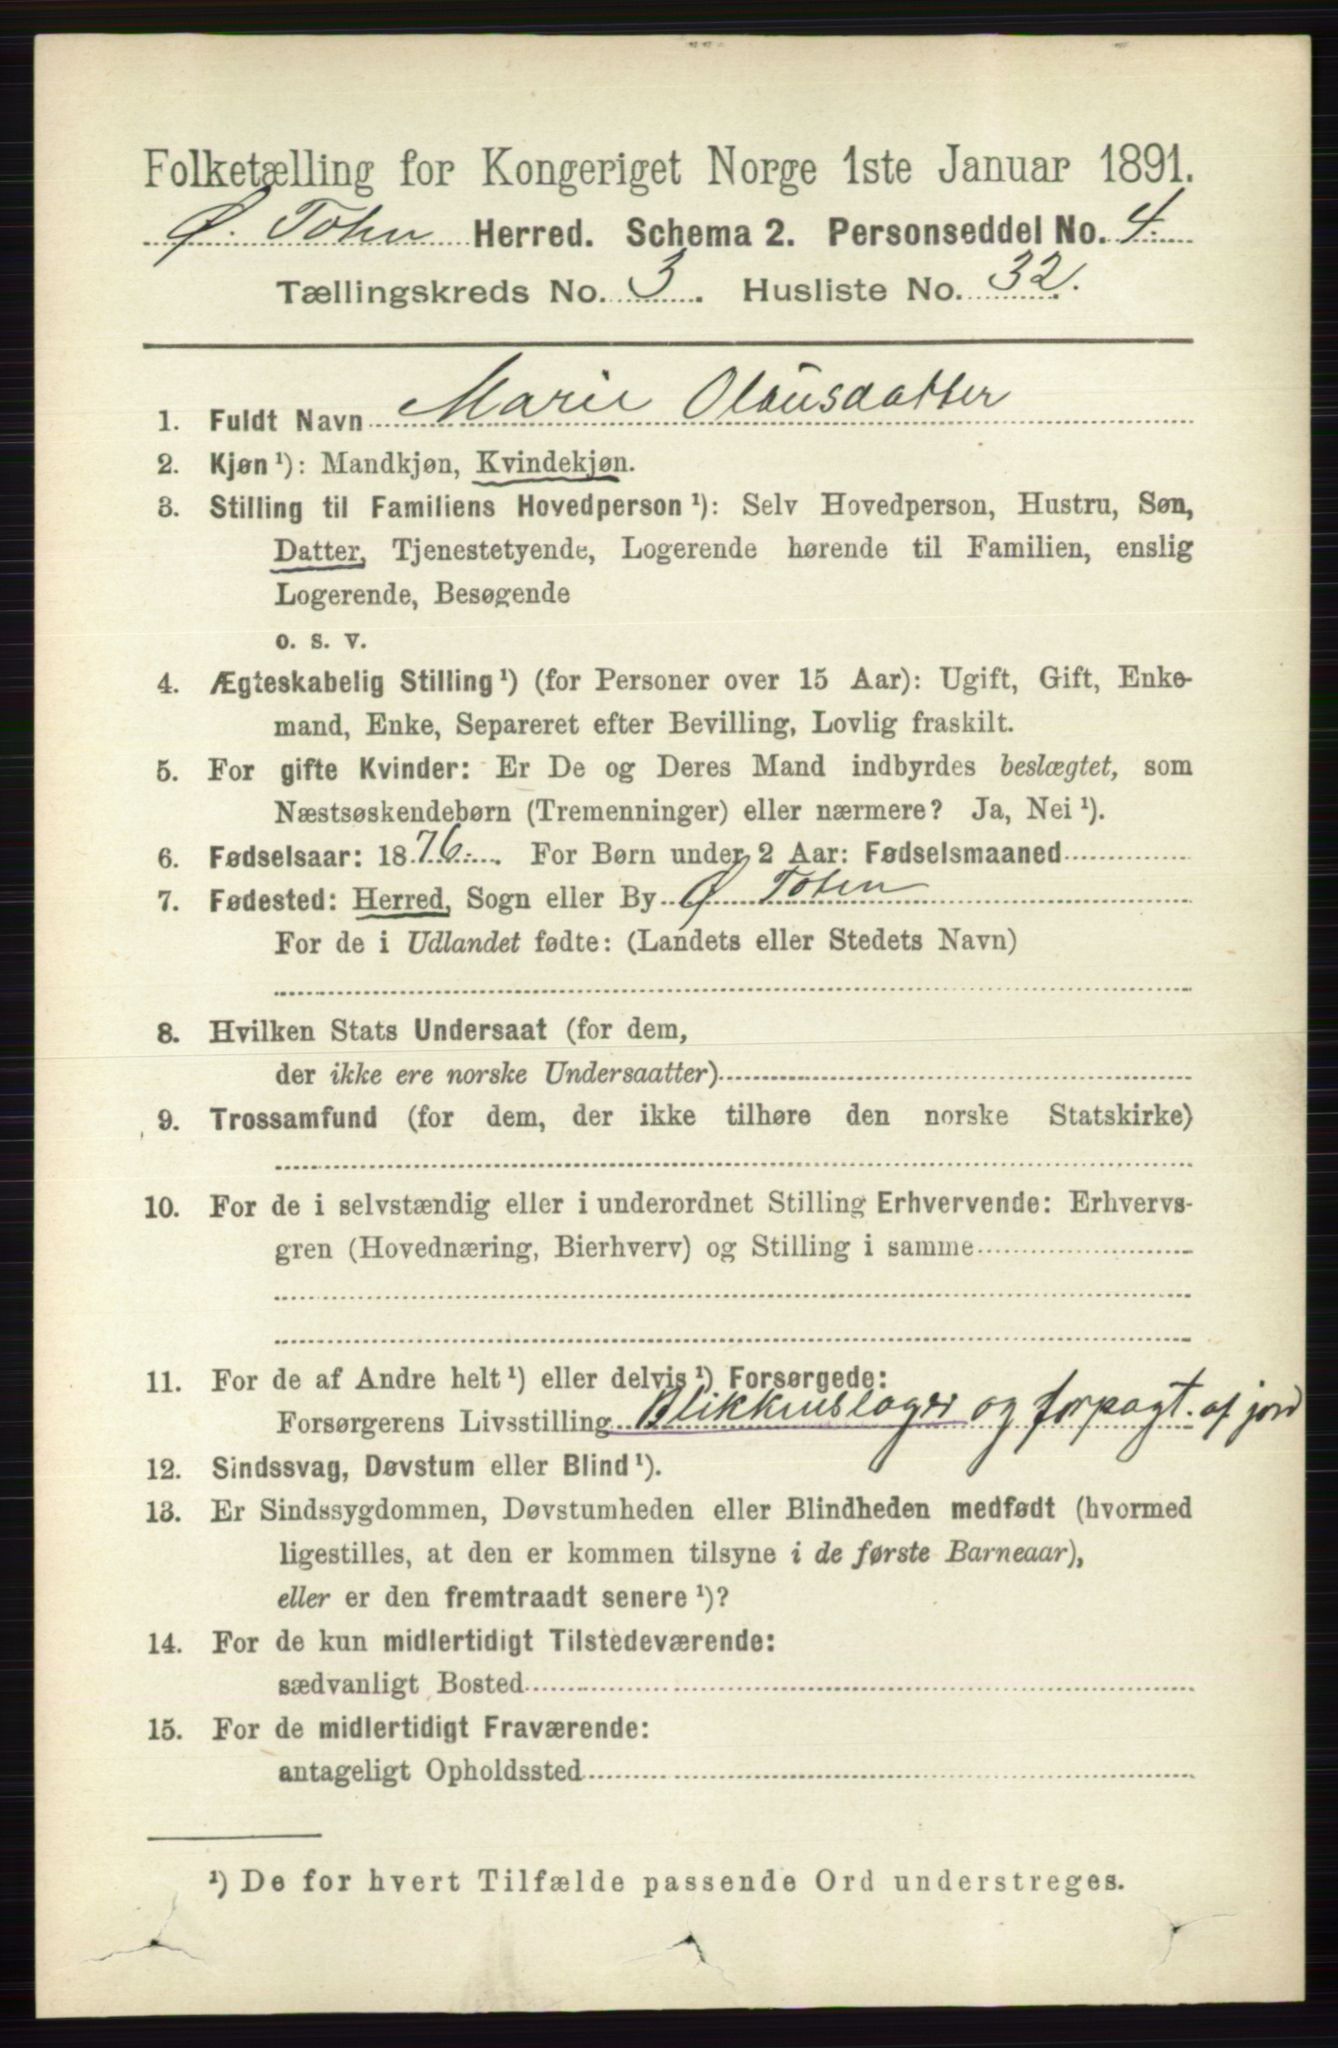 Folketælling for Kongeriget Norge 1ste Januar 1891.
Ø. Toten Herred. Schema 2. Personseddel No. 4.
Tællingskreds No. 3. Husliste No. 32.
1. Fuldt Navn Marie Olausdatter
2. Kjøn ¹): Mandkjøn, Kvindekjøn.
3. Stilling til Familiens Hovedperson ¹): Selv Hovedperson, Hustru, Søn,
Datter, Tjenestetyende, Logerende hørende til Familien, enslig
Logerende, Besøgende
o. s. v.
4. Ægteskabelig Stilling ¹) (for Personer over 15 Aar): Ugift, Gift, Enke-
mand, Enke, Separeret efter Bevilling, Lovlig fraskilt.
5. For gifte Kvinder: Er De og Deres Mand indbyrdes beslægtet, som
Næstsøskendebørn (Tremenninger) eller nærmere? Ja, Nei ¹).
6. Fødselsaar: 1876. For Børn under 2 Aar: Fødselsmaaned
7. Fødested: Herred, Sogn eller By Ø Toten
For de i Udlandet fødte: (Landets eller Stedets Navn)
8. Hvilken Stats Undersaat (for dem,
der ikke ere norske Undersaatter)
9. Trossamfund (for dem, der ikke tilhøre den norske Statskirke)
10. For de i selvstændig eller i underordnet Stilling Erhvervende: Erhvervs-
gren (Hovednæring, Bierhverv) og Stilling i samme
11. For de af Andre helt ¹) eller delvis ¹) Forsørgede:
Forsørgerens Livsstilling Blikkenslager og forpagt. af jord
12. Sindssvag, Døvstum eller Blind ¹).
13. Er Sindssygdommen, Døvstumheden eller Blindheden medfødt (hvormed
ligestilles, at den er kommen tilsyne i de første Barneaar),
eller er den fremtraadt senere ¹)?
14. For de kun midlertidigt Tilstedeværende:
sædvanligt Bosted
15. For de midlertidigt Fraværende:
antageligt Opholdssted
¹) De for hvert Tilfælde passende Ord understreges.